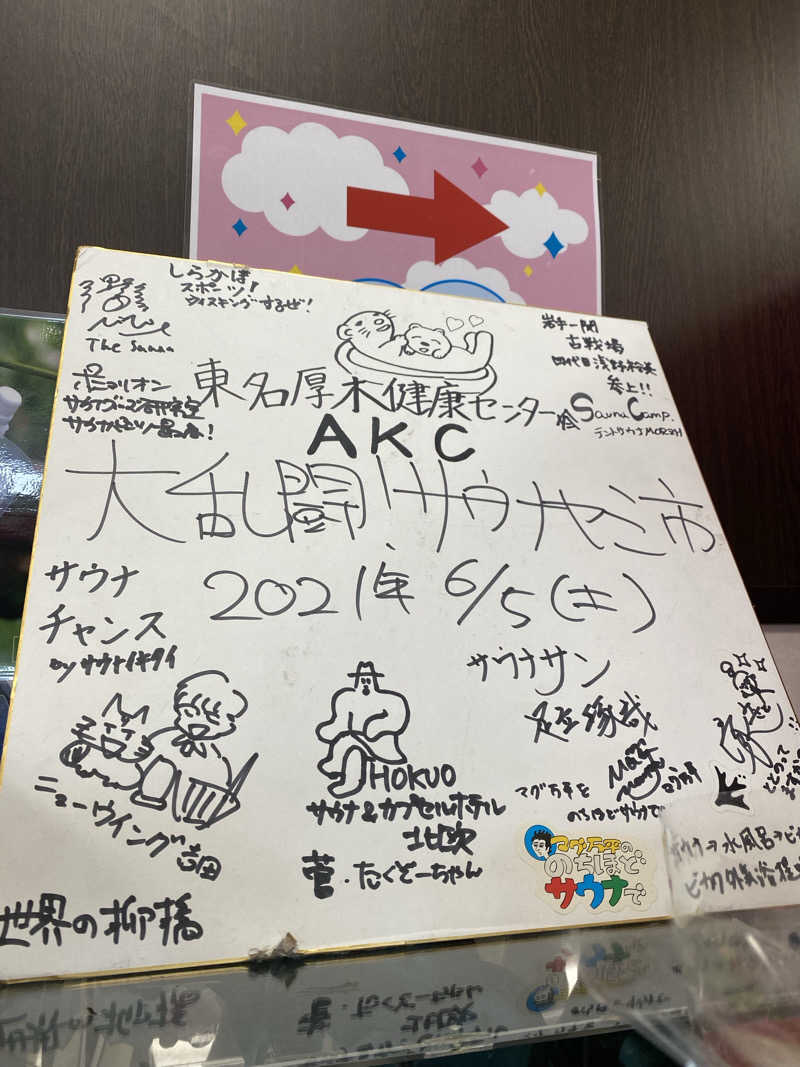 しらかば
スポーツ!
ウィスキングするぜ!
The Sauna
岩手一関
古戦場
四代目浅野裕美
参上!!
ポミリオン
サウナグッズ研究室
東名厚木健康センター
AKC
Sauna Camp.
テントサウナMORZH
大乱闘!サウナヤミ市
2021年 6/5(土)
サウナ
チャンス
by サウナイキタイ
サウナサン
足立琢哉
マグ万平を
のちほどサウナで
HOKUO
サウナ&カプセルホテル
北欧
菅・たくどーちゃん
ニューウイング吉田
マグ万平の
のちほど
サウナで
サウナヲ水風呂ヲ
世界の柳橋